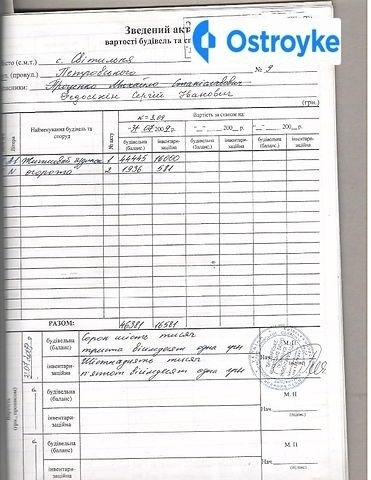 Зведений акт
вартості будівель та с
Ostroyke
місто (с.м.т.) с. Світильня
вул. (провул.) Петровського № 9
Проценко Михайло Станіславович
Федосенін Сергій Іванович
(грн.)
Літера
Найменування будівель та споруд
№ акту
Вартість за станом на:
к-3,09
31.07.2009 р.
"__" ____ 200__ р.
"__" ____ 200__ р.
будівельна (баланс.)
інвентаризаційна
будівельна (баланс.)
інвентаризаційна
будівельна (баланс.)
інвентаризаційна
А1 Житловий будинок 1 44445 16000
N огорожа 2 1936 581
РАЗОМ: 46381 16581
будівельна (баланс)
Сорок шість тисяч
триста вісімдесят одна грн
М. П
інвентаризаційна
Шістнадцять тисяч
п'ятсот вісімдесят одна грн
Нач.
(підпис)
будівельна (баланс)
М. П
інвентаризаційна
Нач.
(підпис)
будівельна (баланс)
М. П
інвентаризаційна
Нач.
(підпис)